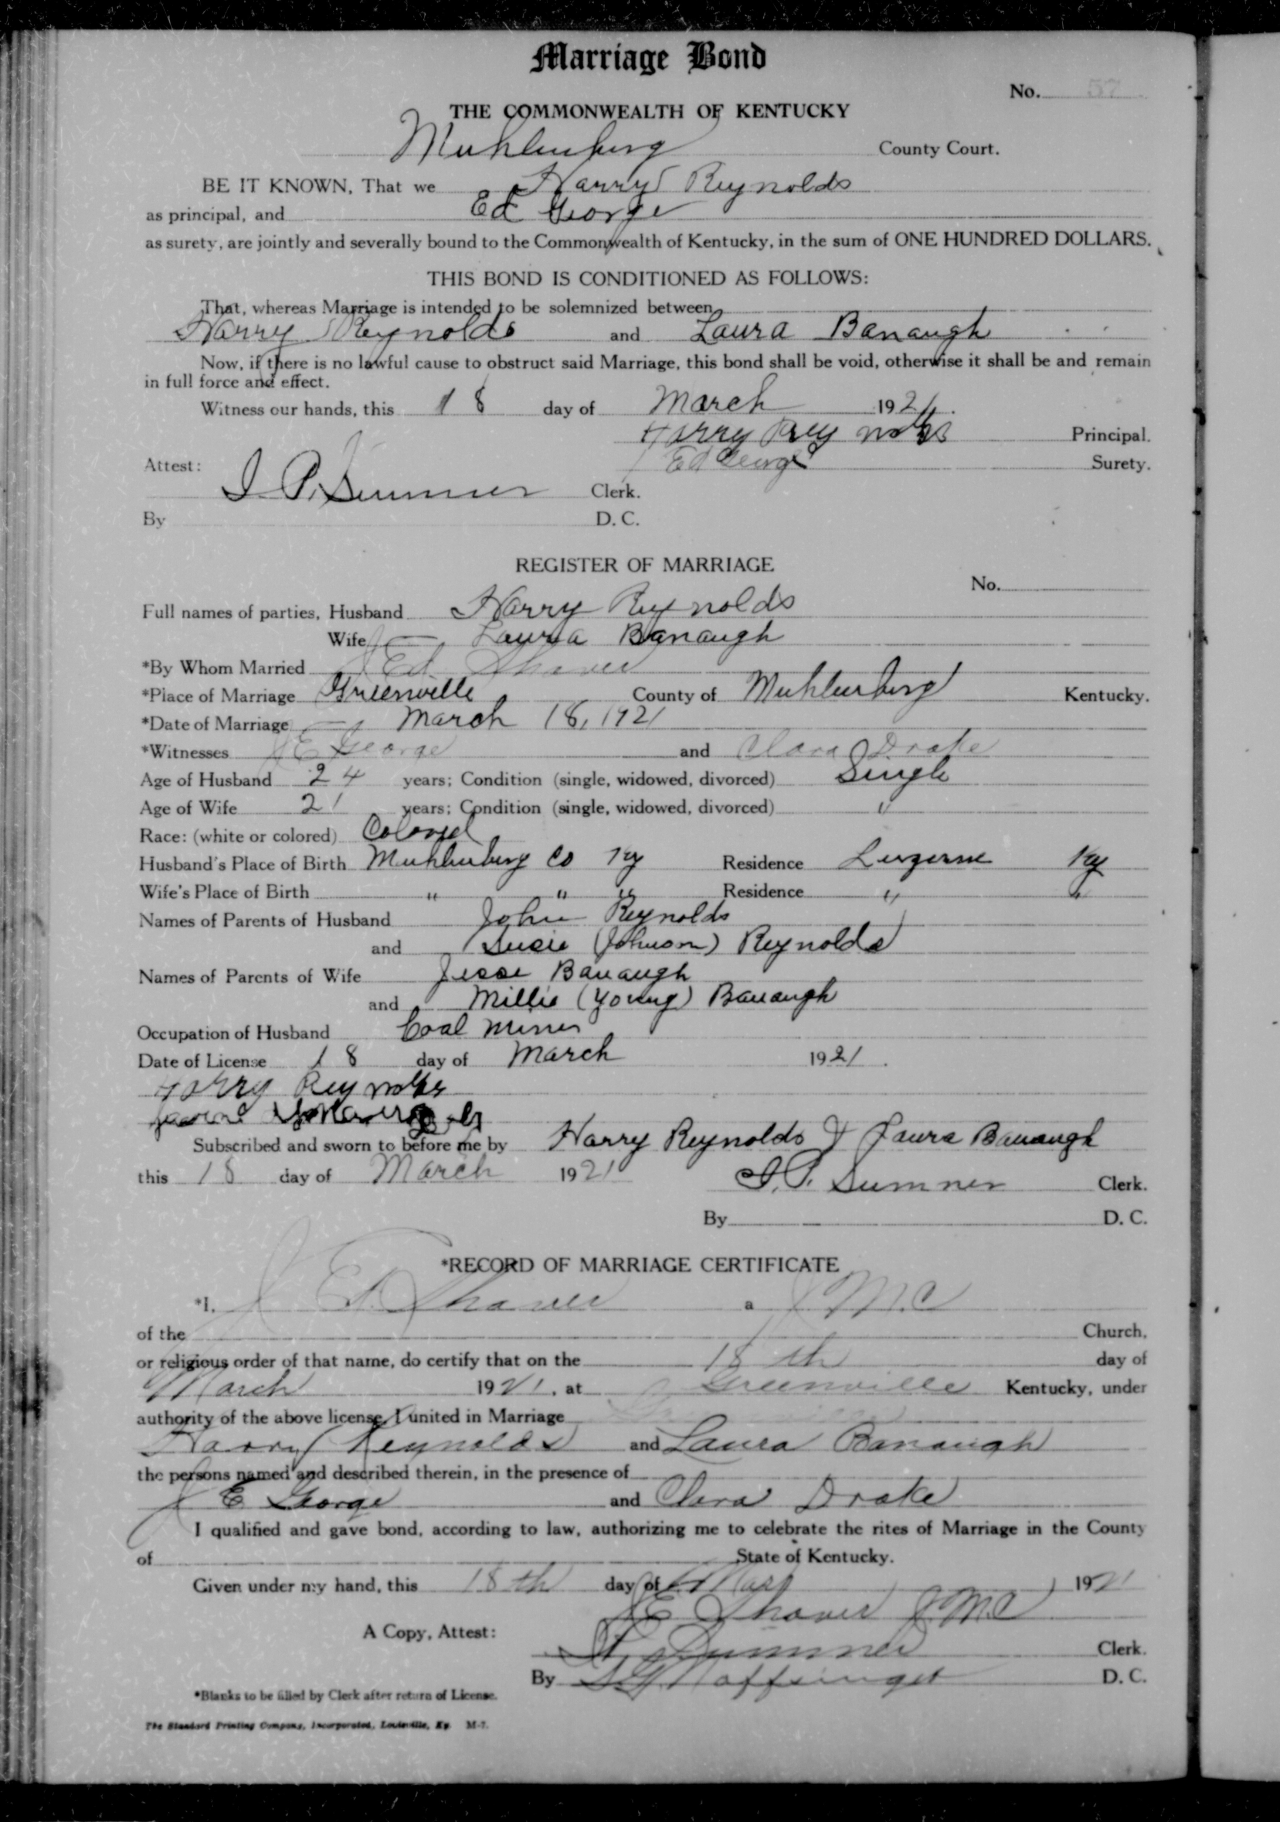 Marriage Bond
No. 57
THE COMMONWEALTH OF KENTUCKY
Muhlenberg County Court.
BE IT KNOWN, That we Harry Reynolds
as principal, and Ed George
as surety, are jointly and severally bound to the Commonwealth of Kentucky, in the sum of ONE HUNDRED DOLLARS.
THIS BOND IS CONDITIONED AS FOLLOWS:
That, whereas Marriage is intended to be solemnized between
Harry Reynolds and Laura Banaugh
Now, if there is no lawful cause to obstruct said Marriage, this bond shall be void, otherwise it shall be and remain
in full force and effect.
Witness our hands, this 18 day of March 1921.
Harry Reynolds Principal.
Attest: Ed George Surety.
I. P. Sumner Clerk.
By D. C.
REGISTER OF MARRIAGE
No.
Full names of parties, Husband Harry Reynolds
Wife Laura Banaugh
*By Whom Married J Ed. Shaver
*Place of Marriage Greenville County of Muhlenberg Kentucky.
*Date of Marriage March 18, 1921
*Witnesses J E George and Clara Drake
Age of Husband 24 years; Condition (single, widowed, divorced) Single
Age of Wife 21 years; Condition (single, widowed, divorced) "
Race: (white or colored) Colored
Husband's Place of Birth Muhlenberg Co Ky Residence Luzerne Ky
Wife's Place of Birth " " " Residence " "
Names of Parents of Husband John Reynolds
and Susie (Johnson) Reynolds
Names of Parents of Wife Jesse Banaugh
and Millie (Young) Banaugh
Occupation of Husband Coal Miner
Date of License 18 day of March 1921.
Harry Reynolds
Subscribed and sworn to before me by Harry Reynolds & Laura Banaugh
this 18 day of March 1921
I. P. Sumner Clerk.
By D. C.
*RECORD OF MARRIAGE CERTIFICATE
*I, J Ed. Shaver a J M.C
of the Church,
or religious order of that name, do certify that on the 18th day of
March 1921, at Greenville Kentucky, under
authority of the above license, I united in Marriage
Harry Reynolds and Laura Banaugh
the persons named and described therein, in the presence of
J E George and Clara Drake
I qualified and gave bond, according to law, authorizing me to celebrate the rites of Marriage in the County
of State of Kentucky.
Given under my hand, this 18th day of Mar 1921
J E Shaver J.M.C
A Copy, Attest: Sumner Clerk.
By Noffsinger D. C.
*Blanks to be filled by Clerk after return of License.
The Standard Printing Company, Incorporated, Louisville, Ky. M-7.